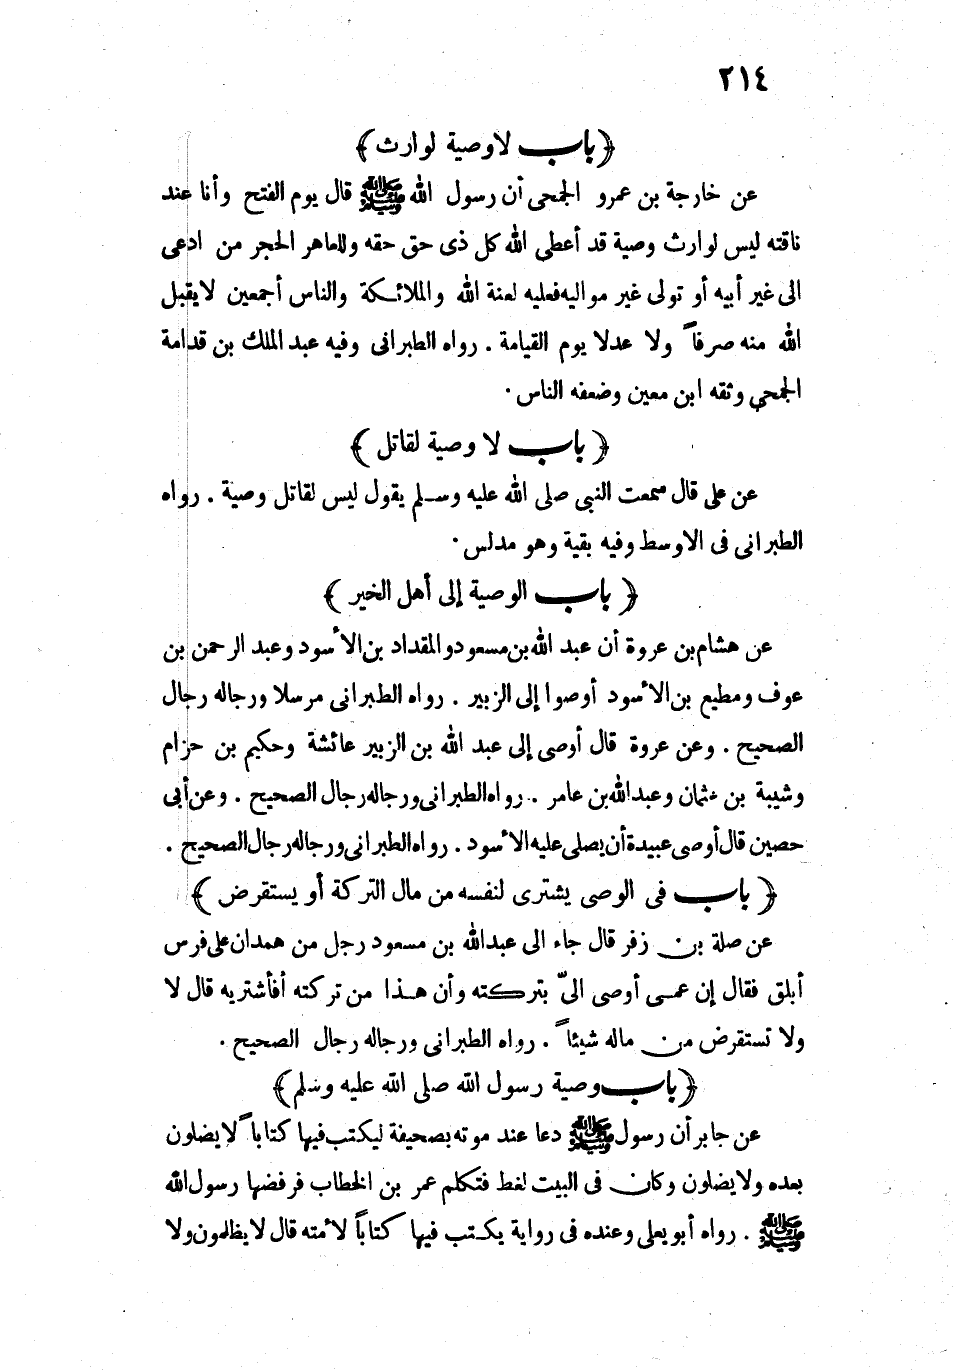 ٢١٤
﴿ باب لا وصية لوارث ﴾
عن خارجة بن عمرو الجمحى أن رسول الله ﷺ قال يوم الفتح وأنا عند
ناقته ليس لوارث وصية قد أعطى الله كل ذى حق حقه وللعاهر الحجر من ادعى
الى غير أبيه أو تولى غير مواليه فعليه لعنة الله والملائكة والناس أجمعين لا يقبل
الله منه صرفاً ولا عدلا يوم القيامة . رواه الطبرانى وفيه عبد الملك بن قدامة
الجمحى وثقه ابن معين وضعفه الناس .
﴿ باب لا وصية لقاتل ﴾
عن على قال سمعت النبى صلى الله عليه وسلم يقول ليس لقاتل وصية . رواه
الطبرانى فى الاوسط وفيه بقية وهو مدلس .
﴿ باب الوصية إلى أهل الخير ﴾
عن هشام بن عروة أن عبد الله بن مسعود والمقداد بن الأسود وعبد الرحمن بن
عوف ومطيع بن الأسود أوصوا إلى الزبير . رواه الطبرانى مرسلا ورجاله رجال
الصحيح . وعن عروة قال أوصى إلى عبد الله بن الزبير عائشة وحكيم بن حزام
وشيبة بن عثمان وعبد الله بن عامر . رواه الطبرانى ورجاله رجال الصحيح . وعن أبى
حصين قال أوصى عبيدة أن يصلى عليه الأسود . رواه الطبرانى ورجاله رجال الصحيح .
﴿ باب فى الوصى يشترى لنفسه من مال التركة أو يستقرض ﴾
عن صلة بن زفر قال جاء الى عبد الله بن مسعود رجل من همدان على فرس
أبلق فقال إن عمى أوصى الىّ بتركته وأن هذا من تركته أفأشتريه قال لا
ولا تستقرض من ماله شيئاً . رواه الطبرانى ورجاله رجال الصحيح .
﴿ باب وصية رسول الله صلى الله عليه وسلم ﴾
عن جابر أن رسول ﷺ دعا عند موته بصحيفة ليكتب فيها كتاباً لا يضلون
بعده ولا يضلون وكان فى البيت لغط فتكلم عمر بن الخطاب فرفضها رسول الله
ﷺ . رواه أبو يعلى وعنده فى رواية يكتب فيها كتاباً لأمته قال لا يظلمون ولا